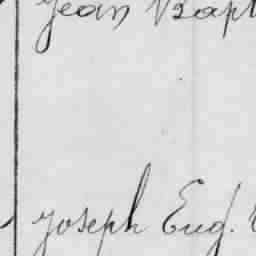 Jean Bapt
Joseph Eug.